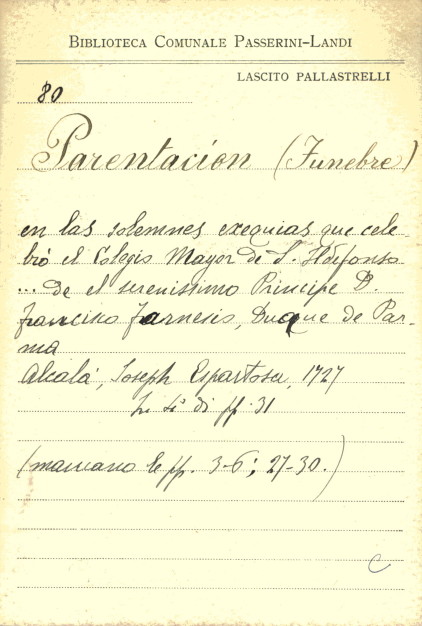 BIBLIOTECA COMUNALE PASSERINI-LANDI
LASCITO PALLASTRELLI
80
Parentacion (Funebre)
en las solemnes exequias que cele-
brò el Colegio Mayor de S. Ildefonso
... de el serenissimo Principe D.
Francisco Farnesio, Duque de Par-
ma
Alcalà, Joseph Espartosa, 1727
di pp. 31
(mancano le pp. 3-6; 27-30.)
C